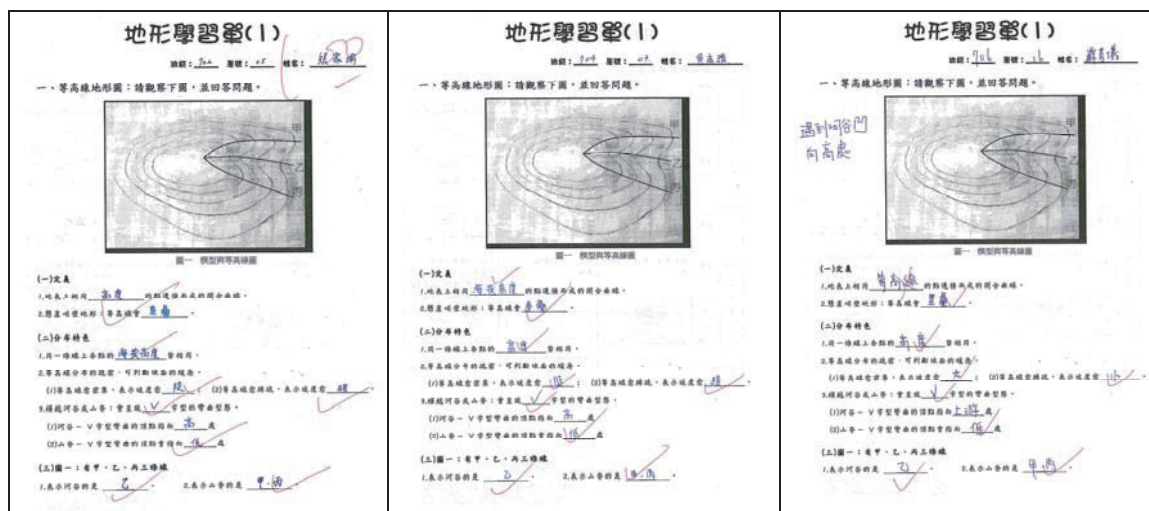 地形學習單(1)
班級：702 座號：05 姓名：
一、等高線地形圖：請觀察下圖，並回答問題。
甲
乙
丙
圖一 模型與等高線圖
(一)定義
1.地表上相同 高度 的點連接而成的閉合曲線。
2.懸崖峭壁地形：等高線會 重疊 。
(二)分布特色
1.同一條線上各點的 海拔高度 皆相同。
2.等高線分布的疏密，可判斷坡面的緩急。
(1)等高線愈密集，表示坡度愈 陡 ； (2)等高線愈稀疏，表示坡度愈 緩 。
3.橫越河谷或山脊：會呈現 V 字型的彎曲型態。
(1)河谉－V字型彎曲的頂點指向 高 處
(2)山脊－V字型彎曲的頂點會指向 低 處
(三)圖一：有甲、乙、丙三條線
1.表示河谷的是 乙 。 2.表示山脊的是 甲、丙 。
地形學習單(1)
班級：704 座號：07 姓名：
一、等高線地形圖：請觀察下圖，並回答問題。
甲
乙
丙
圖一 模型與等高線圖
(一)定義
1.地表上相同 海拔高度 的點連接而成的閉合曲線。
2.懸崖峭壁地形：等高線會 重疊 。
(二)分布特色
1.同一條線上各點的 高度 皆相同。
2.等高線分布的疏密，可判斷坡面的緩急。
(1)等高線愈密集，表示坡度愈 陡 ； (2)等高線愈稀疏，表示坡度愈 緩 。
3.橫越河谷或山脊：會呈現 V 字型的彎曲型態。
(1)河谷－V字型彎曲的頂點指向 高 處
(2)山脊－V字型彎曲的頂點會指向 低 處
(三)圖一：有甲、乙、丙三條線
1.表示河谷的是 乙 。 2.表示山脊的是 甲、丙 。
地形學習單(1)
班級：706 座號：16 姓名：
一、等高線地形圖：請觀察下圖，並回答問題。
遇到河谷凹
向高處
甲
乙
丙
圖一 模型與等高線圖
(一)定義
1.地表上相同 等高線 的點連接而成的閉合曲線。
2.懸崖峭壁地形：等高線會 重疊 。
(二)分布特色
1.同一條線上各點的 高度 皆相同。
2.等高線分布的疏密，可判斷坡面的緩急。
(1)等高線愈密集，表示坡度愈 大 ； (2)等高線愈稀疏，表示坡度愈 小 。
3.橫越河谷或山脊：會呈現 V 字型的彎曲型態。
(1)河谷－V字型彎曲的頂點指向 上游 處
(2)山脊－V字型彎曲的頂點會指向 低 處
(三)圖一：有甲、乙、丙三條線
1.表示河谷的是 乙 。 2.表示山脊的是 甲、丙 。